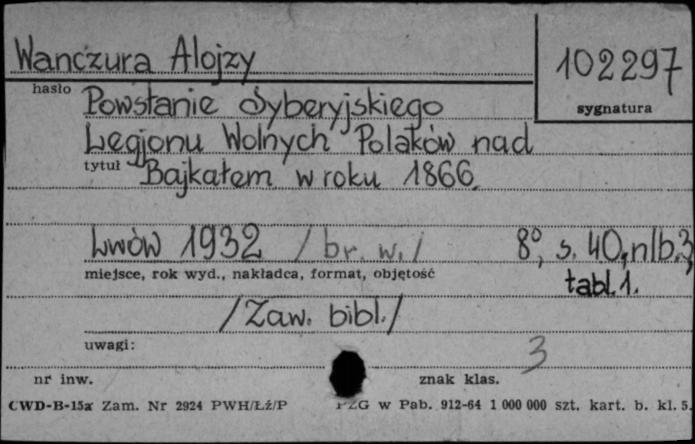 Wanczura Alojzy
102297
hasło
sygnatura
Powstanie Syberyjskiego
Legjonu Wolnych Polaków nad
tytuł Bajkałem w roku 1866.
Lwów 1932 /br. w./ 8°, s. 40, nlb. 3,
miejsce, rok wyd., nakładca, format, objętość
tabl. 1.
/Zaw. bibl./
uwagi:
3
nr inw. znak klas.
CWD-B-15a Zam. Nr 2924 PWH/Łź/P PZG w Pab. 912-64 1 000 000 szt. kart. b. kl. 5.